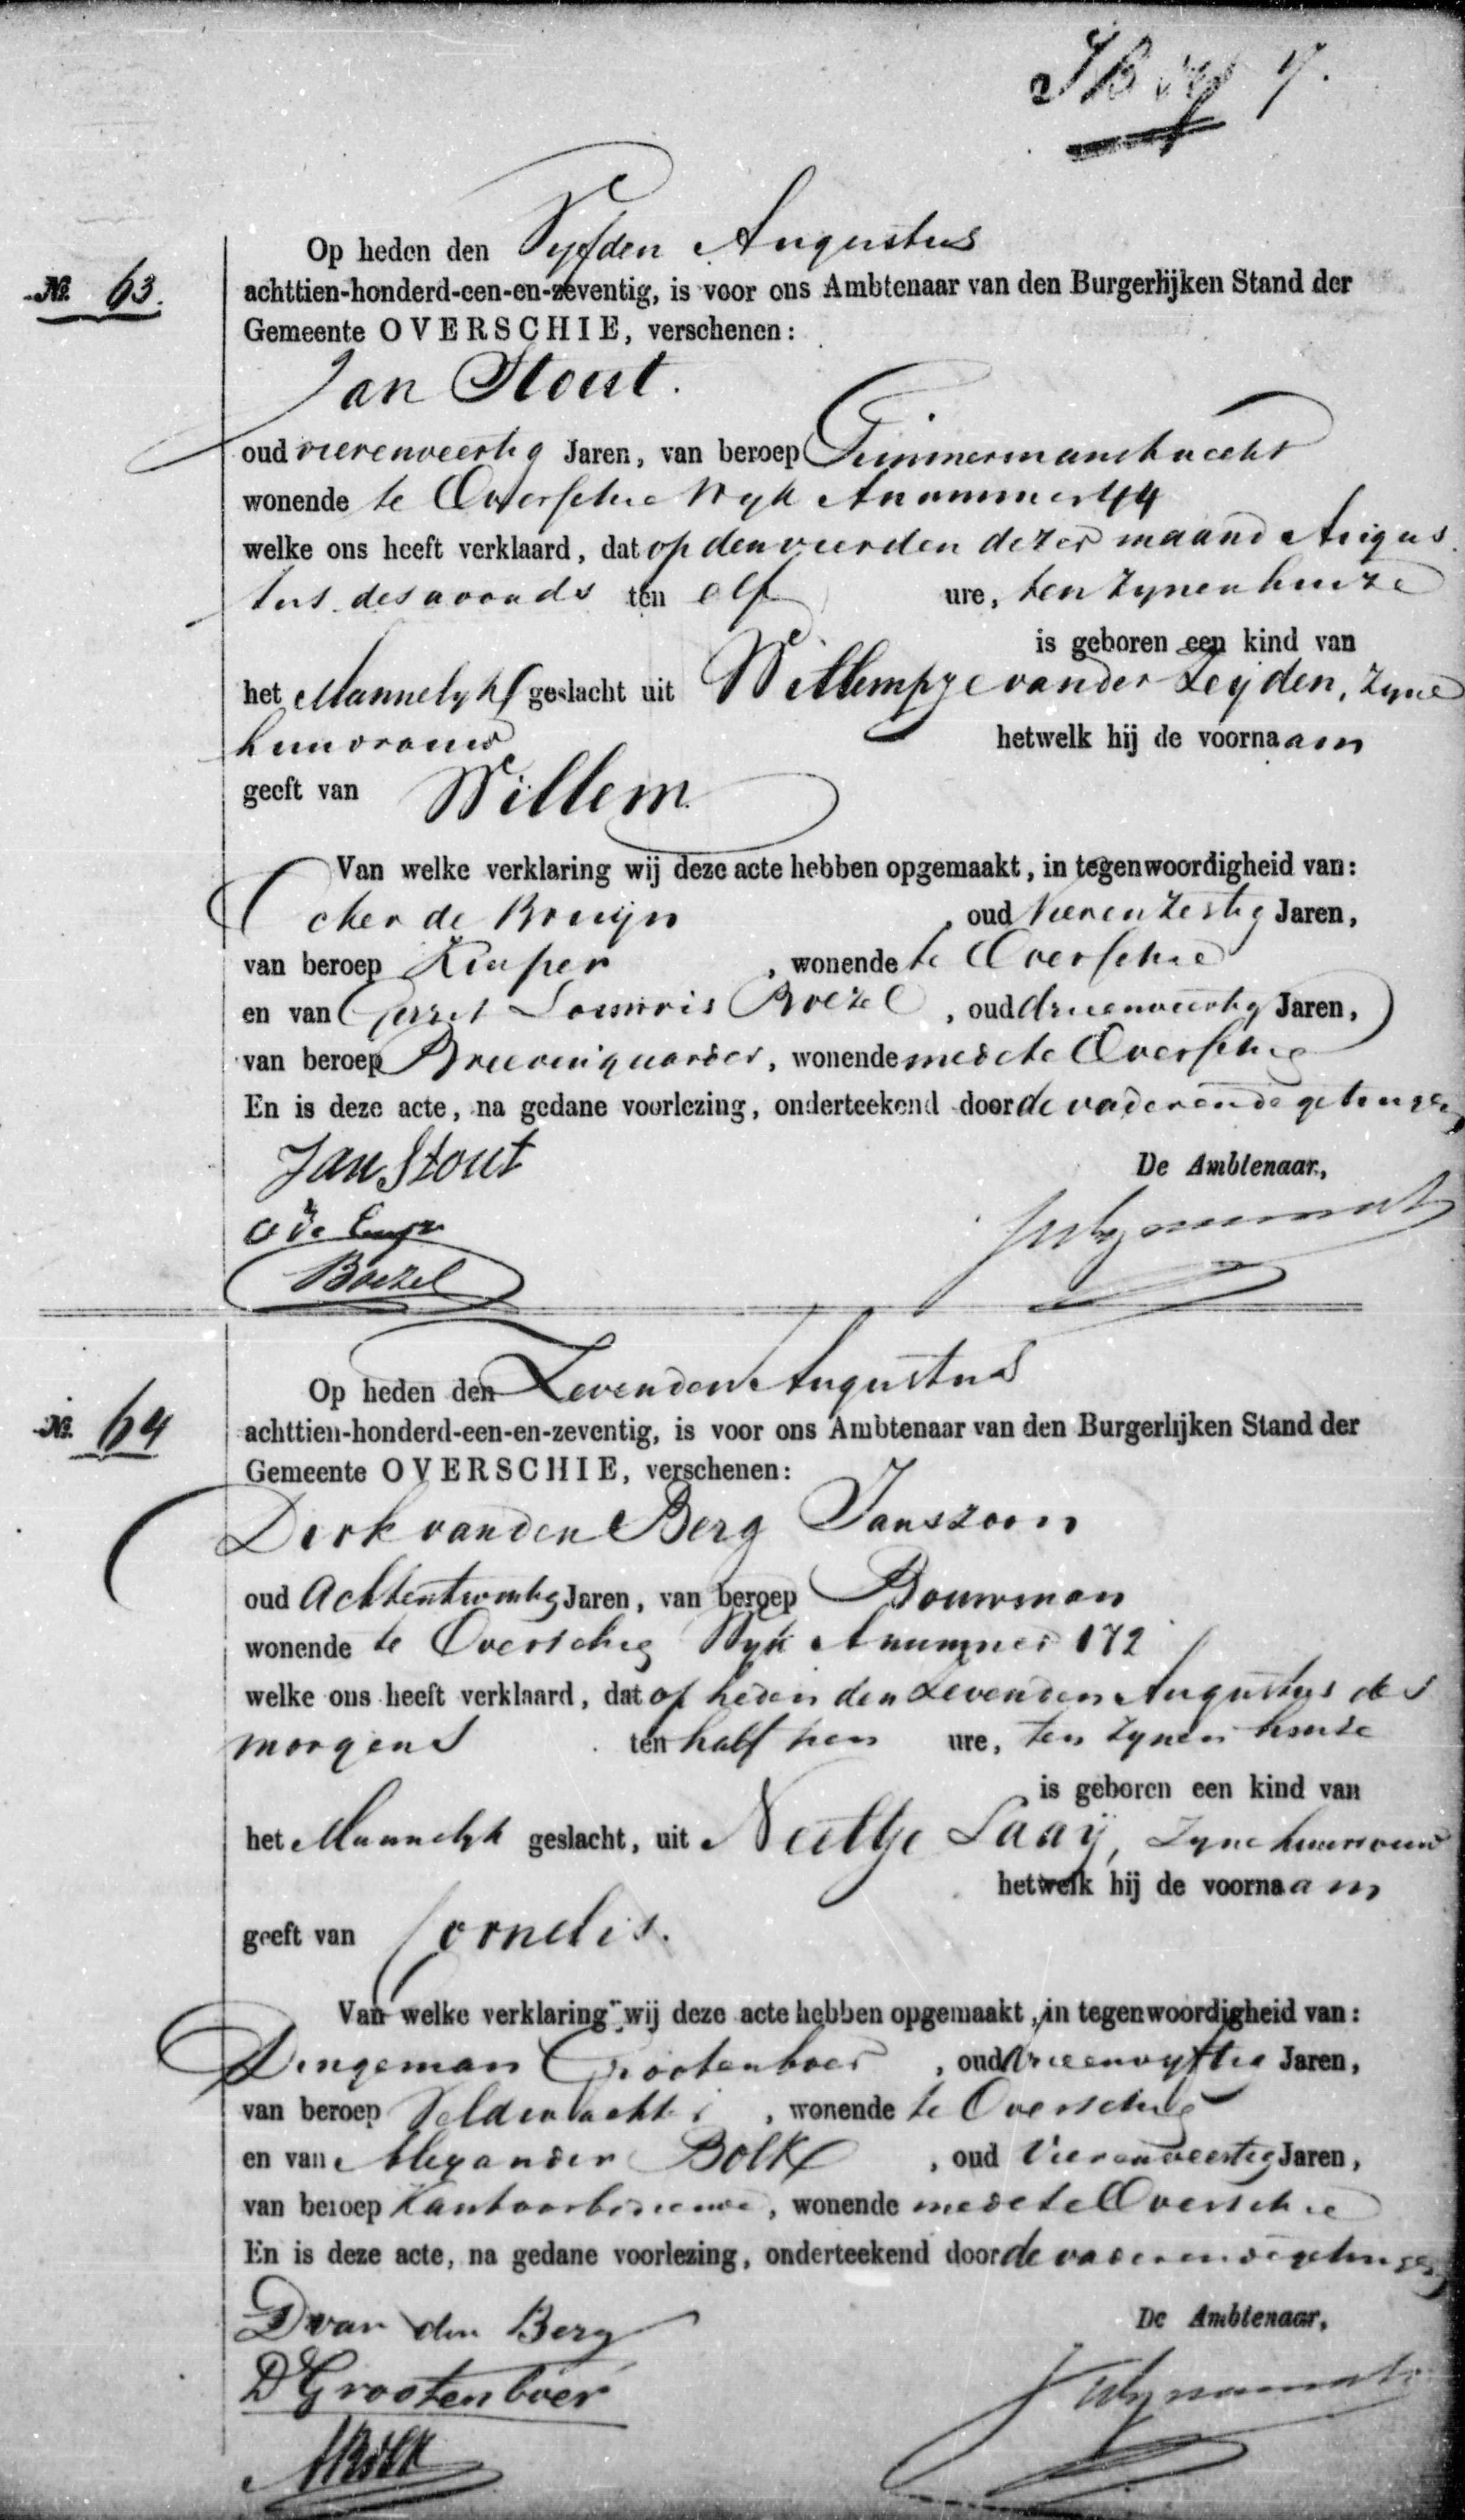 Op heden den Vyfden Augustus
No. 63.
achttien-honderd-een-en-zeventig, is voor ons Ambtenaar van den Burgerlijken Stand der
Gemeente OVERSCHIE, verschenen:
Jan Stout.
oud vierenveertig Jaren, van beroep Timmermansknecht
wonende te Overschie Wyk A nummer 44
welke ons heeft verklaard, dat op den vierden dezer maand Augus
tus des avonds ten elf ure, ten zynen huize
is geboren een kind van
het Mannelyk geslacht uit Willempje van der Leyden, zyne
huisvrouw hetwelk hij de voornaam
geeft van Willem
Van welke verklaring wij deze acte hebben opgemaakt, in tegenwoordigheid van:
de Bruijn, oud Vierenzestig Jaren,
van beroep Kuiper, wonende te Overschie
en van Gerrit Louwris Boezel, oud drieenveertig Jaren,
van beroep Brievengaarder, wonende mede te Overschie
En is deze acte, na gedane voorlezing, onderteekend door de vader en de getuigen
Jan Stout De Ambtenaar,
Boezel
Op heden den Zevenden Augustus
No. 64
achttien-honderd-een-en-zeventig, is voor ons Ambtenaar van den Burgerlijken Stand der
Gemeente OVERSCHIE, verschenen:
Dirk van den Berg Janszoon
oud Achtentwintig Jaren, van beroep Bouwman
wonende te Overschie Wyk A nummer 172
welke ons heeft verklaard, dat op heden den Zevenden Augustus des
morgens ten half tien ure, ten zynen huize
is geboren een kind van
het Mannelyk geslacht, uit Neeltje Laaij, zyne huisvrouw
hetwelk hij de voornaam
geeft van Cornelis.
Van welke verklaring wij deze acte hebben opgemaakt, in tegenwoordigheid van:
Dingeman Grootenboer, oud drieenvyftig Jaren,
van beroep Veldwachter, wonende te Overschie
en van Alexander Bolk, oud Vierenveertig Jaren,
van beroep Kantoorbediende, wonende mede te Overschie
En is deze acte, na gedane voorlezing, onderteekend door de vader en de getuigen
D van den Berg De Ambtenaar,
D Grootenboer
A Bolk